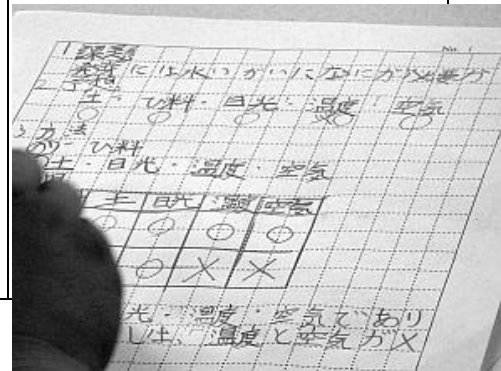 No. 1
1 課題
発芽には水いがいに何が必要か
2. 予想
土・ひ料・日光・温度・空気
○ ○ ○ ○ ○
3 方法
ひ料
土・日光・温度・空気
土 日光 温度 空気
○ ○ ○ ○
○ × ×
光・温度・空気であり
しは、温度と空気が×